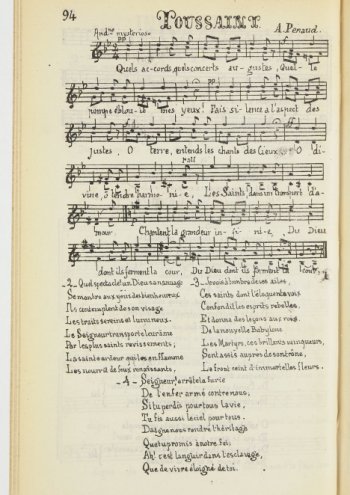 94
TOUSSAINT
And.no mysterioso
A. Penaud.
pp
Quels ac-cords, quels concerts au-gustes, Quel-le
pp ff
pompe éblou-it mes yeux! Fais si-lence à l'aspect des
ff
Justes, O terre, entends les chants des Cieux. O di-
rall
vine, ô tendre harmo-ni-e, Les Saints, dans un transport d'a-
mour Chantent la grandeur in-fi-ni-e, Du Dieu
dont ils forment la cour, Du Dieu dont ils forment la cour.
-2- Quel spectacle! un Dieu sans nuage
Se montre aux yeux des bienheureux
Ils contemplent de son visage
Les traits sereins et lumineux.
Le Seigneur transporte leur âme
Par les plus saints ravissements;
La sainte ardeur qui les enflamme
Les nourrit de feux renaissants.
-3- Je vois à l'ombre de ses ailes,
Ces saints dont l'éloquente voix
Confondit les esprits rebelles,
Et donna des leçons aux rois.
De la nouvelle Babylone
Les Martyrs, ces brillants vainqueurs,
Sont assis auprès de son trône,
Le front ceint d'immortelles fleurs.
-4- Seigneur, arrête la furie
De l'enfer armé contre nous;
Si tu perdis pour tous la vie,
Tu fis aussi le ciel pour tous.
Daigne nous rendre l'héritage
Que tu promis à notre foi.
Ah! c'est languir dans l'esclavage,
Que de vivre éloigné de toi.